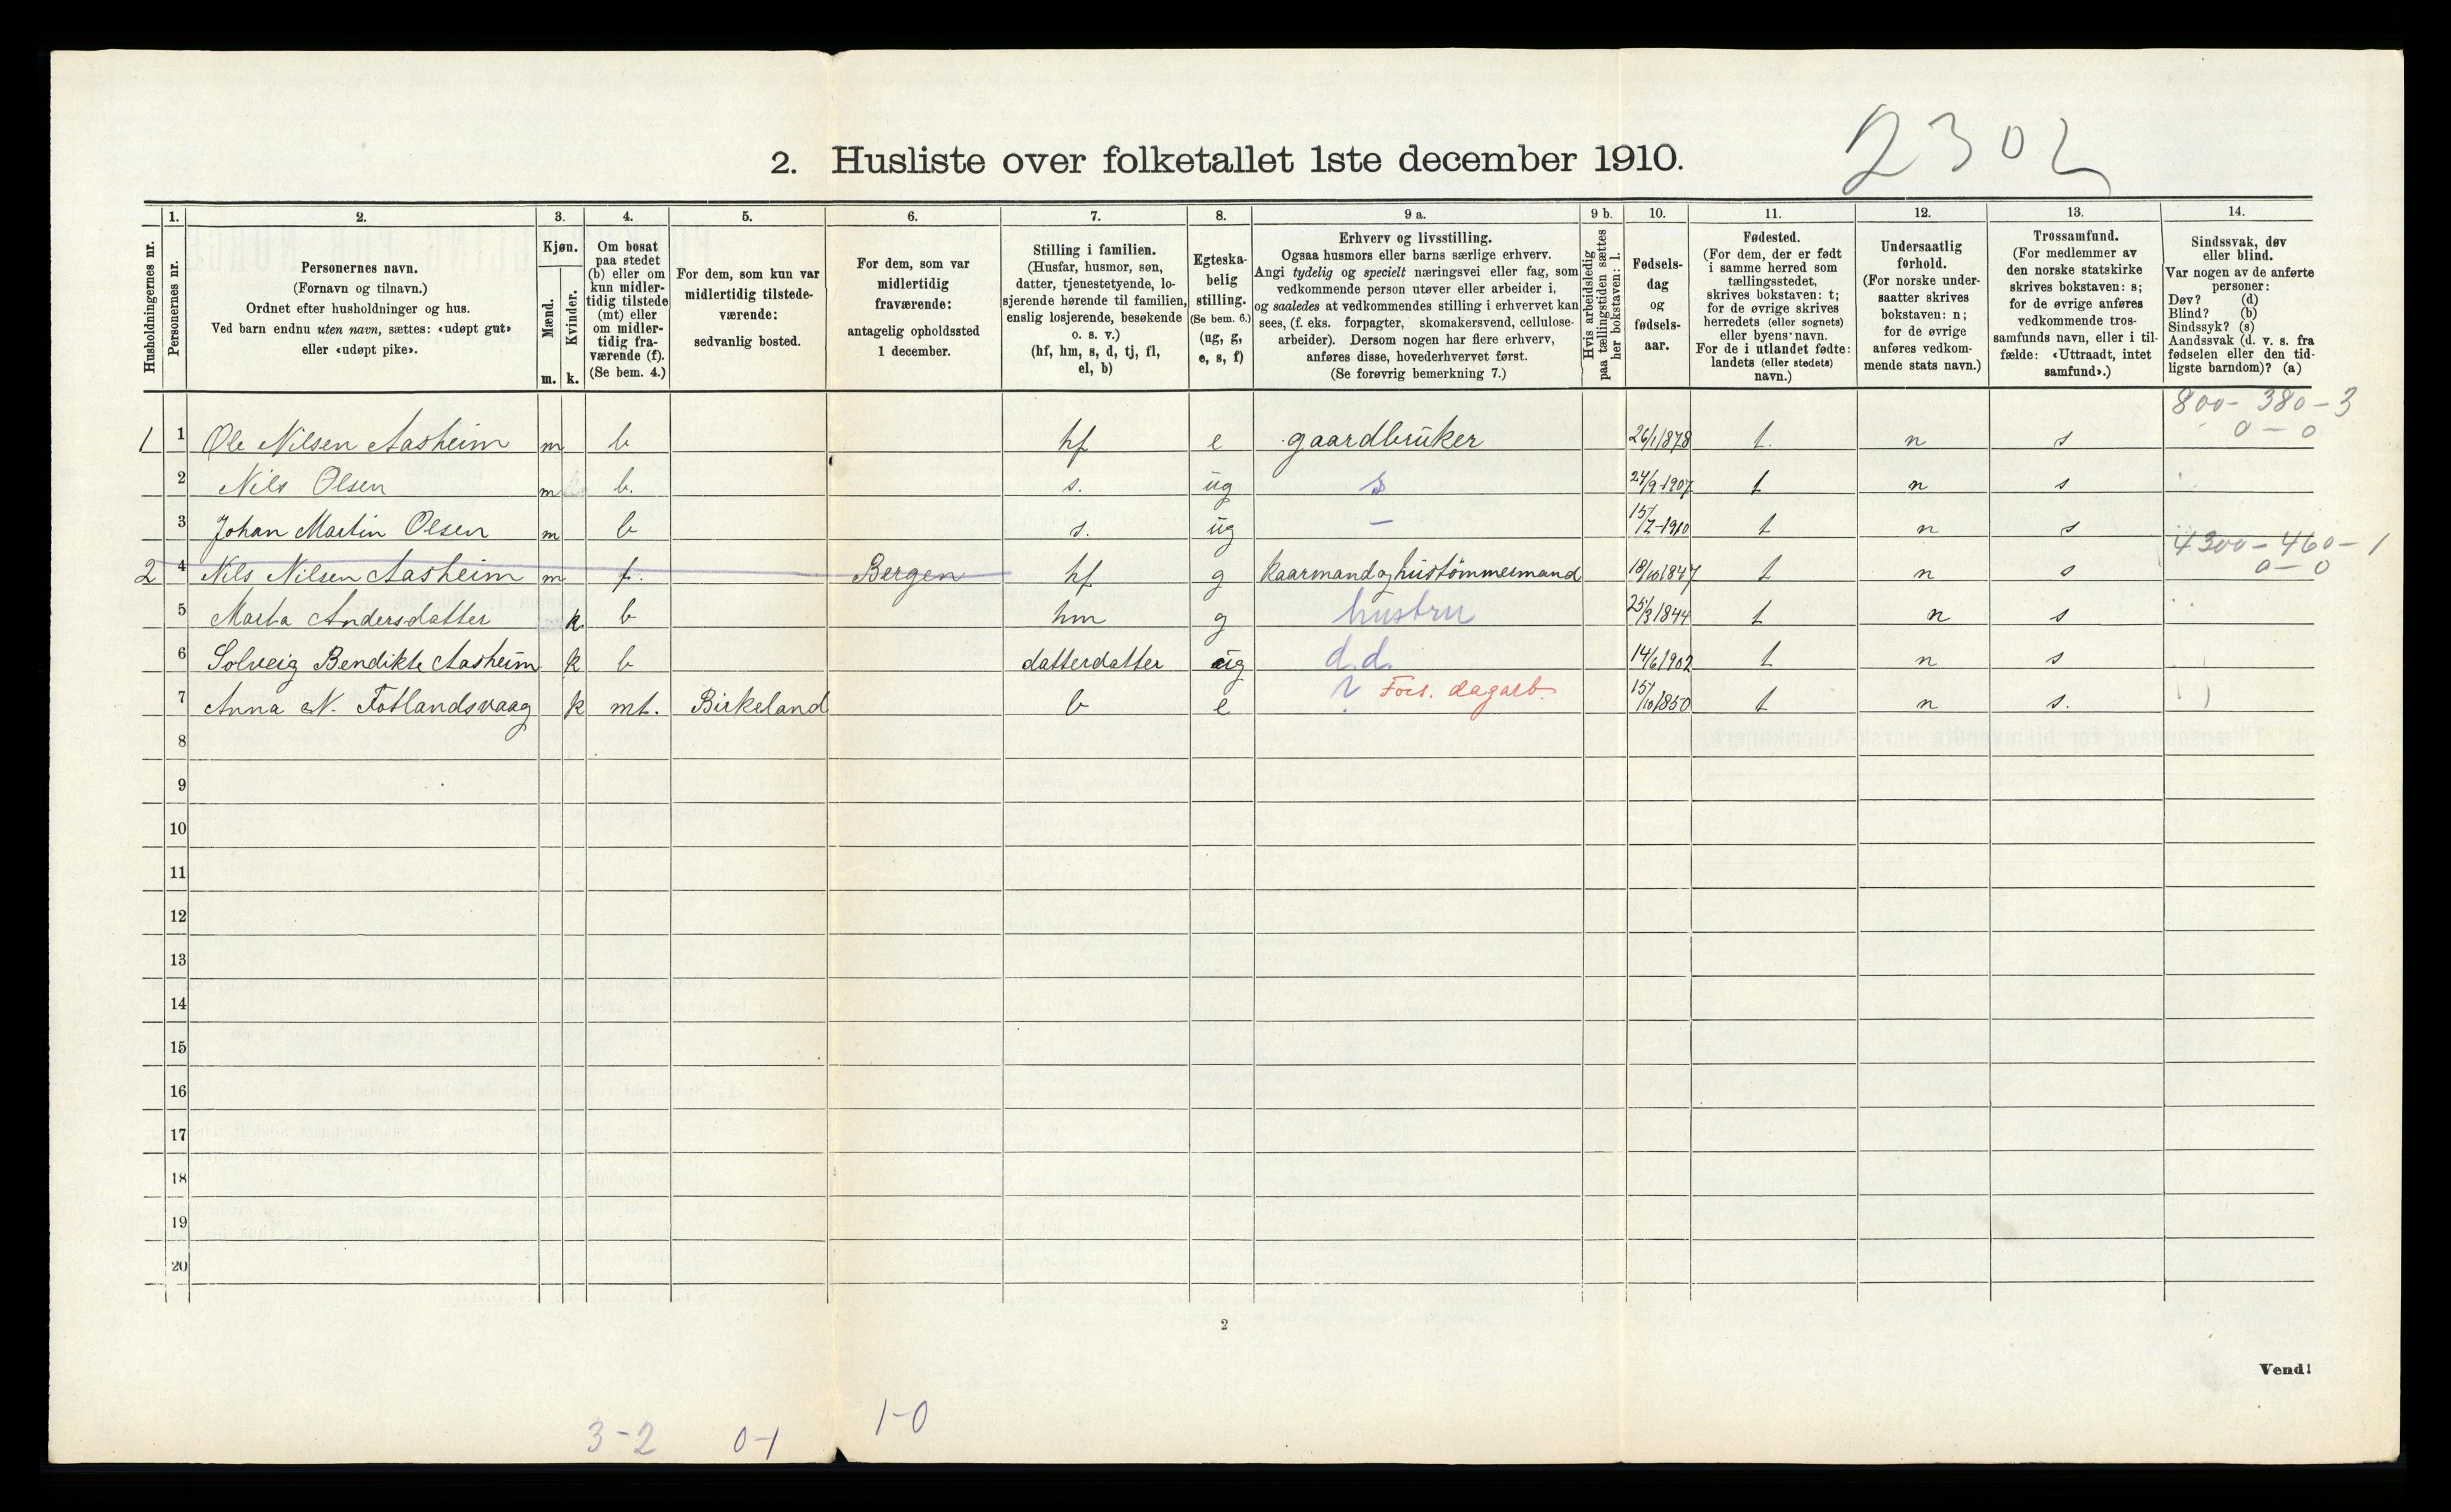 2302
2. Husliste over folketallet 1ste december 1910.
Husholdningernes nr.
1. Personernes nr.
2. Personernes navn. (Fornavn og tilnavn.) Ordnet efter husholdninger og hus. Ved barn endnu uten navn, sættes: «udøpt gut» eller «udøpt pike».
3. Kjøn. Mænd. m. Kvinder. k.
4. Om bosat paa stedet (b) eller om kun midlertidig tilstede (mt) eller om midlertidig fraværende (f). (Se bem. 4.)
5. For dem, som kun var midlertidig tilstedeværende: sedvanlig bosted.
6. For dem, som var midlertidig fraværende: antagelig opholdssted 1 december.
7. Stilling i familien. (Husfar, husmor, søn, datter, tjenestetyende, losjerende hørende til familien, enslig losjerende, besøkende o. s. v.) (hf, hm, s, d, tj, fl, el, b)
8. Egteskabelig stilling. (Se bem. 6.) (ug, g, e, s, f)
9 a. Erhverv og livsstilling. Ogsaa husmors eller barns særlige erhverv. Angi tydelig og specielt næringsvei eller fag, som vedkommende person utøver eller arbeider i, og saaledes at vedkommendes stilling i erhvervet kan sees, (f. eks. forpagter, skomakersvend, cellulosearbeider). Dersom nogen har flere erhverv, anføres disse, hovederhvervet først. (Se forøvrig bemerkning 7.)
9 b. Hvis arbeidsledig paa tællingstiden sættes her bokstaven: l.
10. Fødselsdag og fødselsaar.
11. Fødested. (For dem, der er født i samme herred som tællingsstedet, skrives bokstaven: t; for de øvrige skrives herredets (eller sognets) eller byens navn. For de i utlandet fødte: landets (eller stedets) navn.)
12. Undersaatlig forhold. (For norske undersaatter skrives bokstaven: n; for de øvrige anføres vedkommende stats navn.)
13. Trossamfund. (For medlemmer av den norske statskirke skrives bokstaven: s; for de øvrige anføres vedkommende trossamfunds navn, eller i tilfælde: «Uttraadt, intet samfund».)
14. Sindssvak, døv eller blind. Var nogen av de anførte personer: Døv? (d) Blind? (b) Sindssyk? (s) Aandssvak (d. v. s. fra fødselen eller den tidligste barndom)? (a)
800 - 380 - 3
0 - 0
1 1 Ole Nilsen Aasheim m b hf e gaardbruker 26/1 1878 t. n s
2 Nils Olsen m b. s. ug s 24/9 1907 t n s
3 Johan Martin Olsen m b s. ug — 15/7-1910 t n s
4300 - 460 - 1
0 - 0
2 4 Nils Nilsen Aasheim m f. Bergen hf g kaarmand og hustømmermand 18/10 1847 t n s
5 Marta Andersdatter k b hm g hustru 25/3 1844 t n s
6 Solveig Bendikte Aasheim k b datterdatter ug d.d. 14/6 1902 t n s
7 Anna N. Fotlandsvaag k mt. Birkeland b e ? Fors. dagarb. 15/10 1850 t n s.
8
9
10
11
12
13
14
15
16
17
18
19
20
2
Vend!
3-2 0-1 1-0